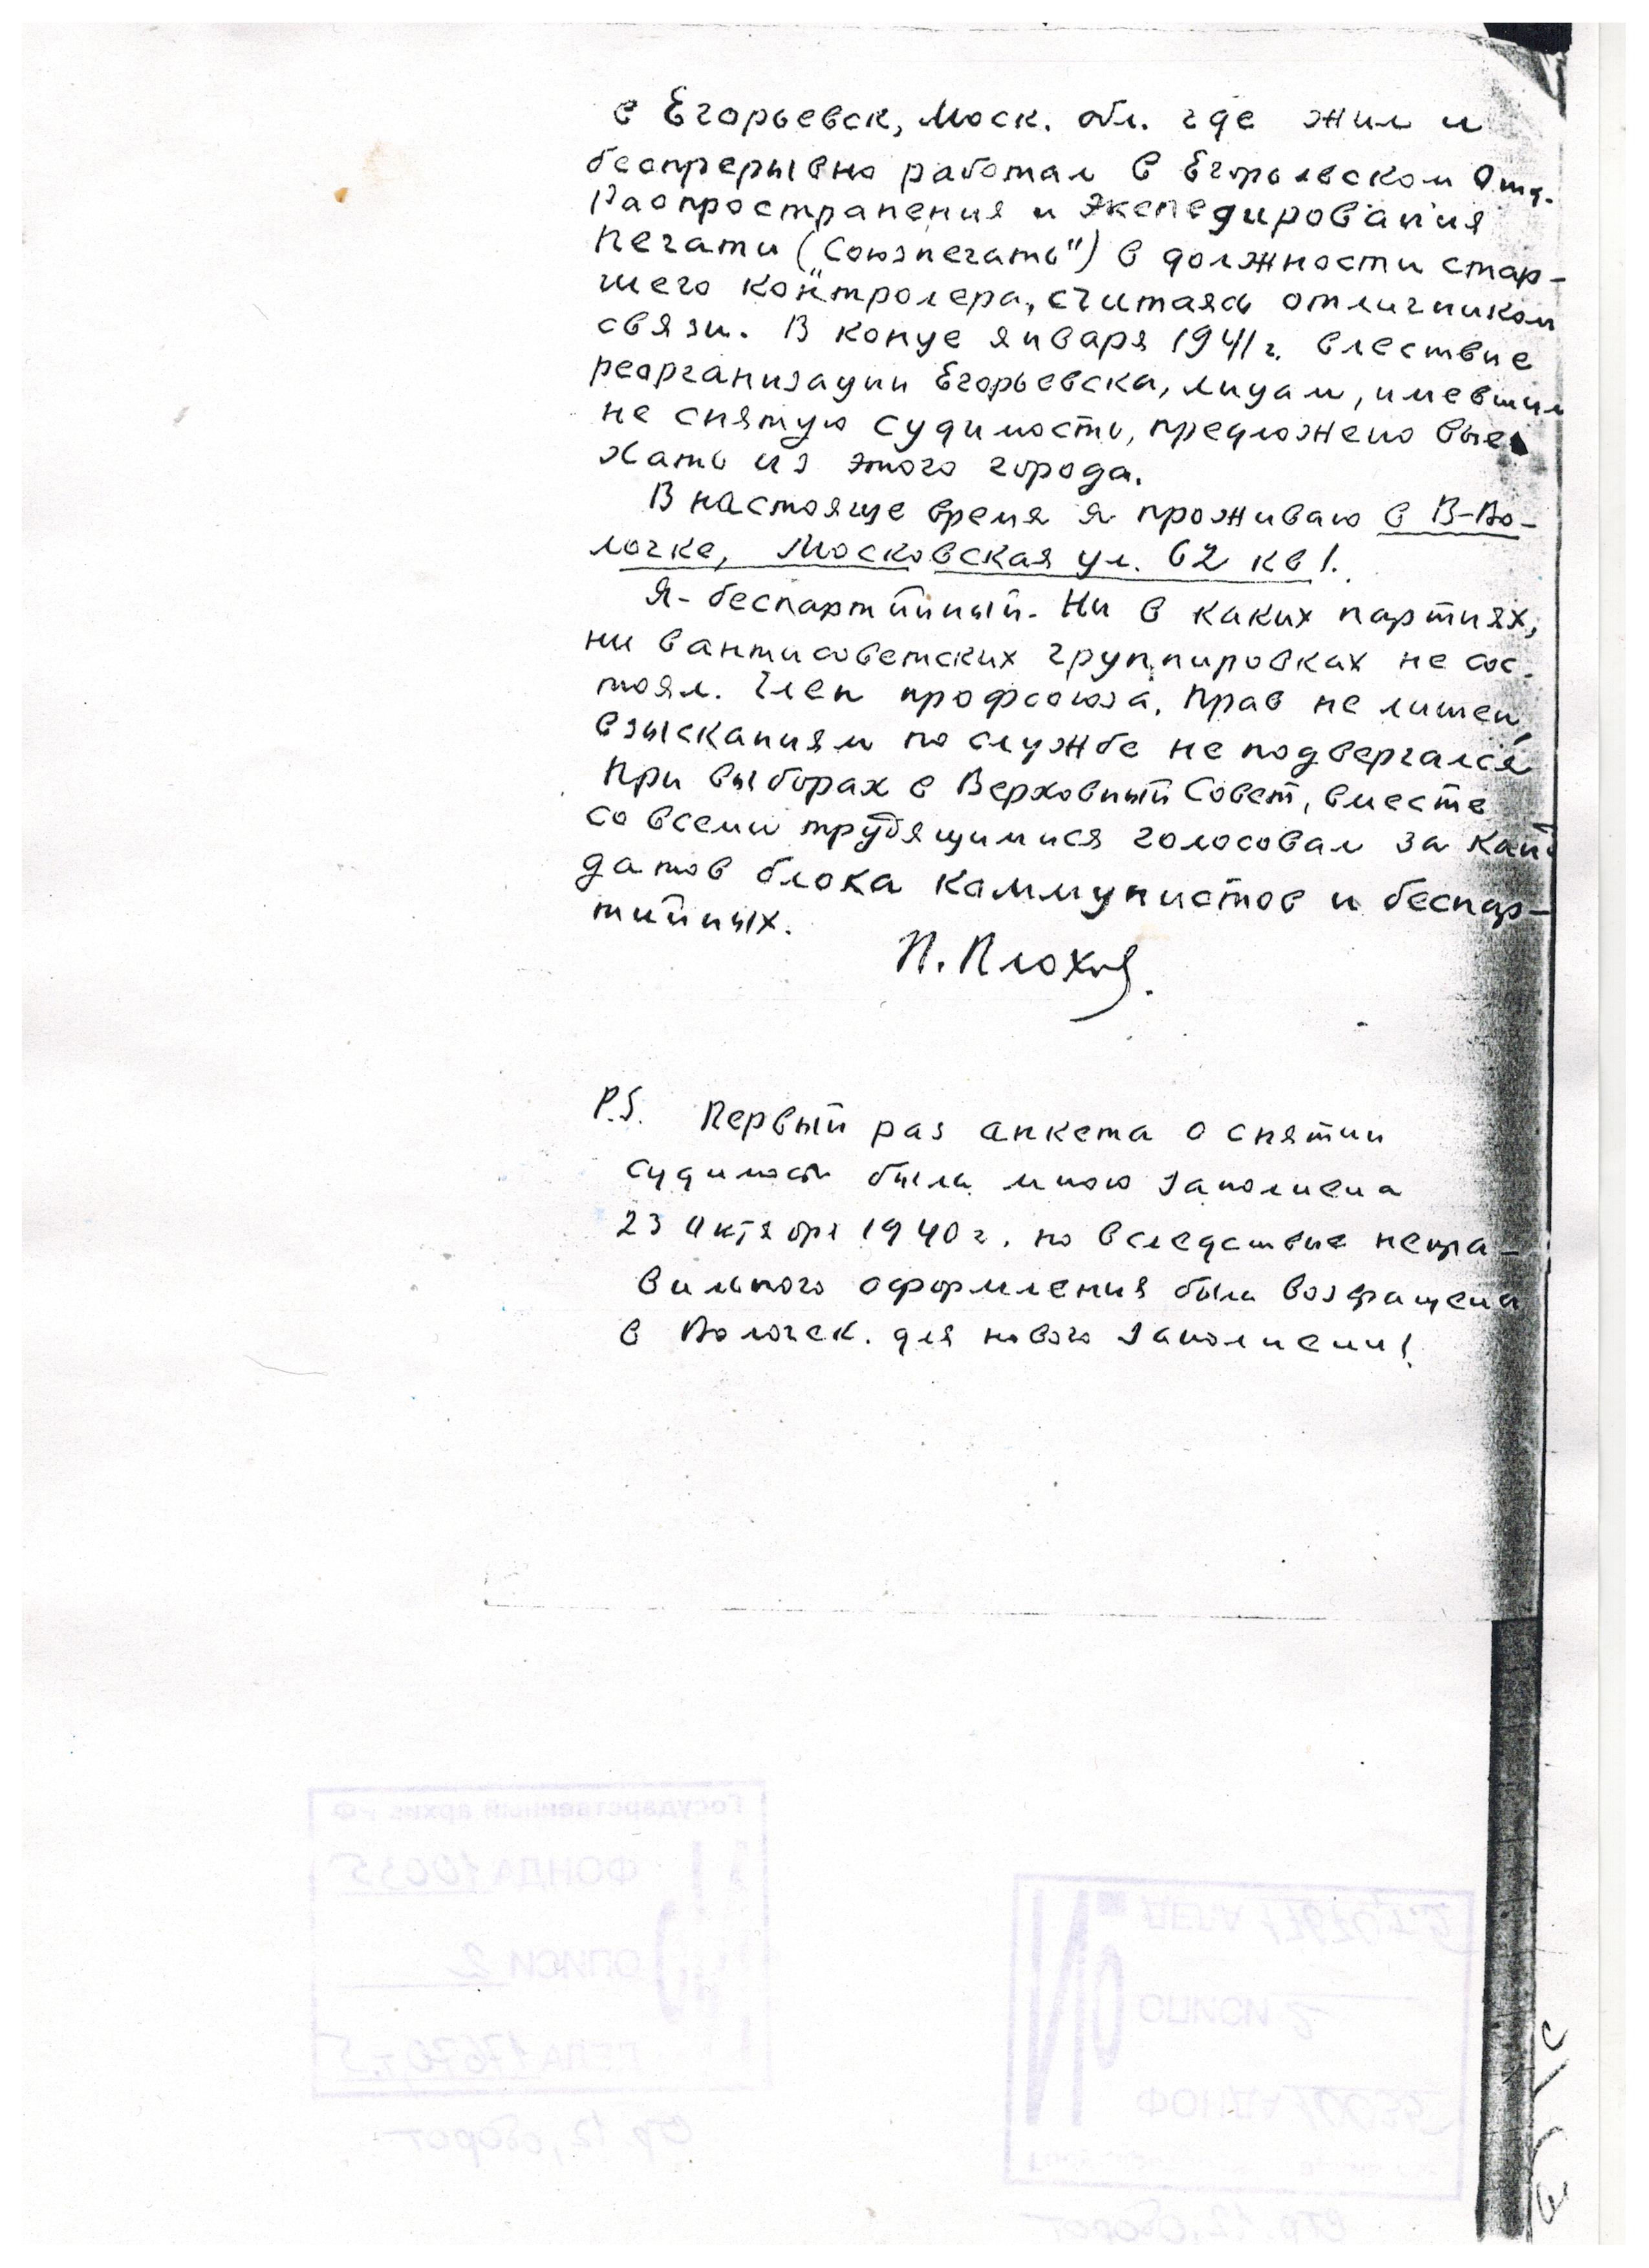 в Егорьевск, Моск. обл. где жил и
беспрерывно работал в Егорьевском Отд.
Распространения и Экспедирования
Печати („Союзпечать") в должности стар-
шего контролера, считаясь отличником
связи. В конце января 1941 г. влествие
реорганизации Егорьевска, лицам, имевшим
не снятую судимость, предложено вые
хать из этого города.
В настояще время я проживаю в В-Во-
лочке, Московская ул. 62 кв 1.
Я-беспартийный. Ни в каких партиях,
ни в антисоветских группировках не сос-
тоял. Член профсоюза. Прав не лишен
взысканиям по службе не подвергался
При выборах в Верховный Совет, вместе
со всеми трудящимися голосовал за канд
датов блока коммунистов и беспар-
тийных.
П. Плохов.
P.S. Первый раз анкета о снятии
судимости была мною заполнена
23 Октября 1940 г. но вследствие непра-
вильного оформления была возвращена
в Волочек. для нового заполнени!
Государственный архив РФ
ФОНДА 10035
ОПИСИ 2
ДЕЛА 17670, т.5
стр 12, оборот
№
ДЕЛА
ОПИСИ 2
ФОНДА 10035
стр. 12, оборот